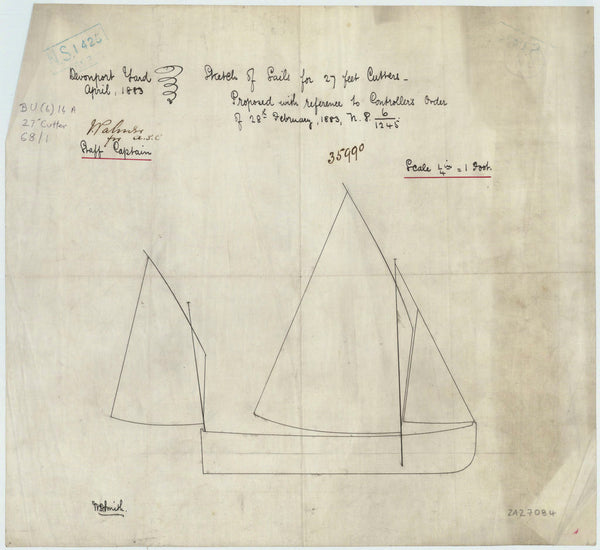 V.S. 1425
Devonport Yard
April, 1883
Sketch of Sails for 27 feet Cutters_
Proposed with reference to Controllers Order
of 28th February, 1883, N.S. 6/1245
B.U.(6) 14 A
27' Cutter
68/1
Staff Captain
35990
Scale 1/4 in = 1 Foot.
2A27084